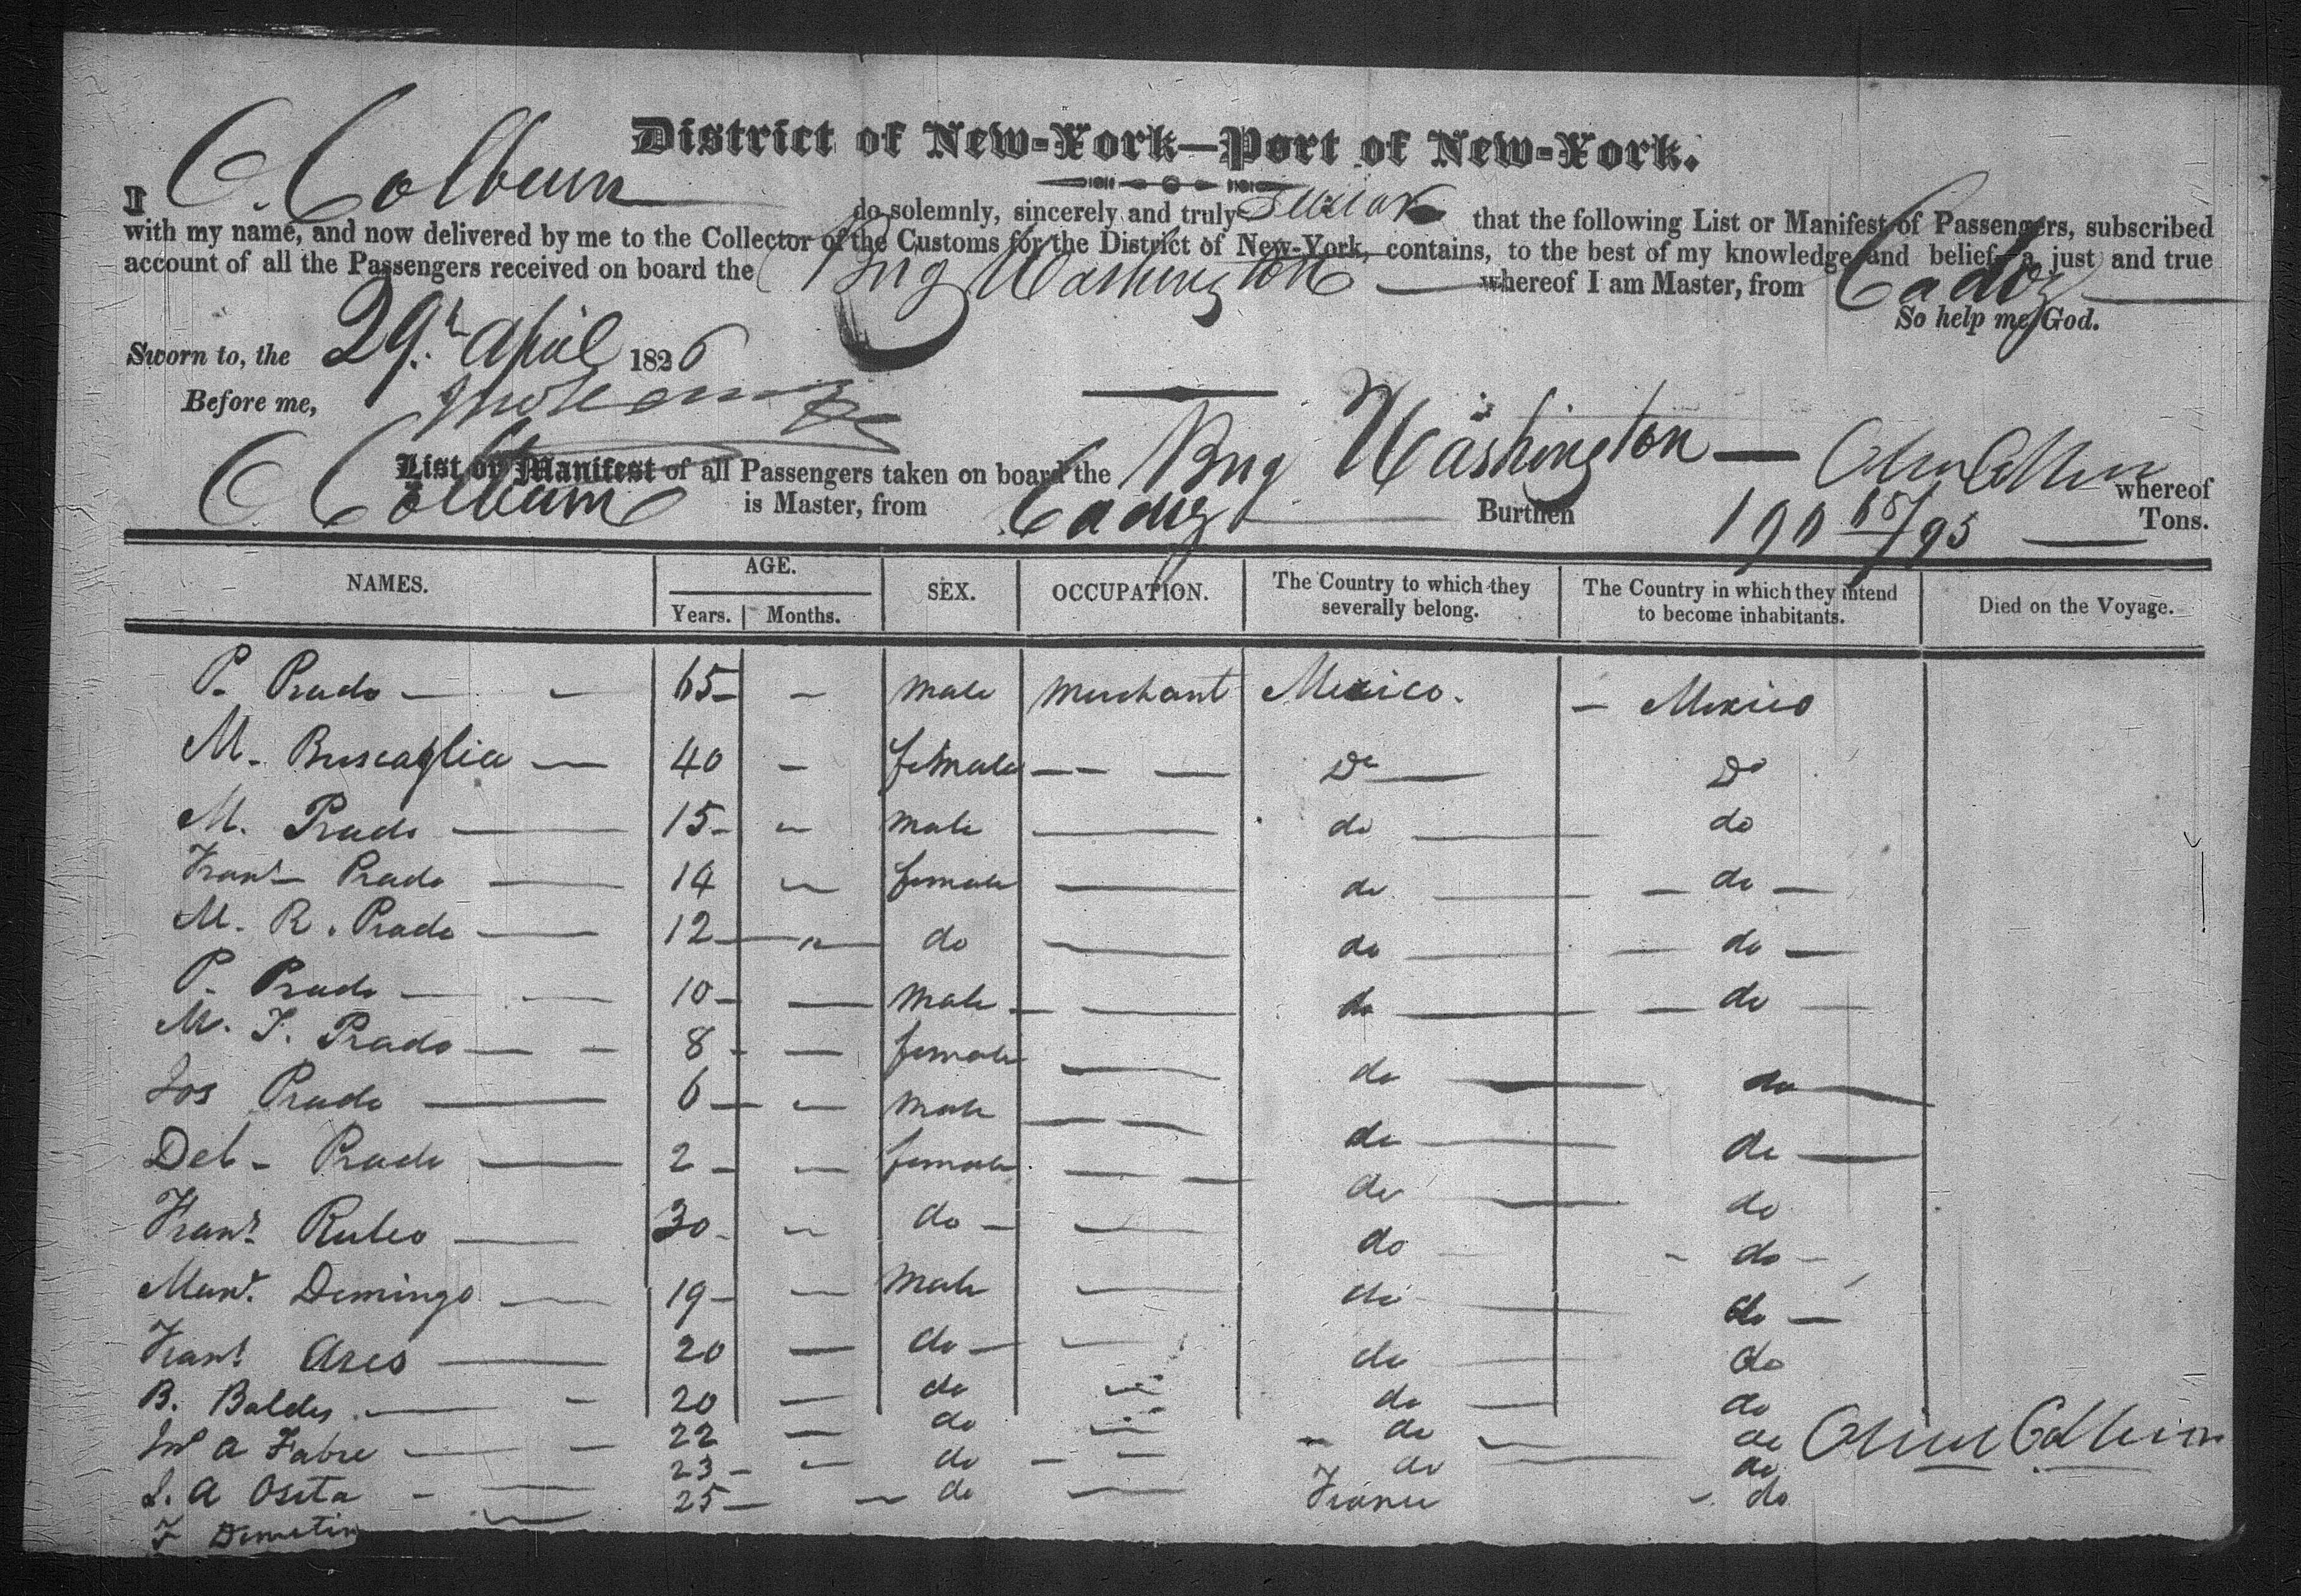 District of New-York—Port of New-York.
I C. Colburn do solemnly, sincerely and truly swear that the following List or Manifest of Passengers, subscribed
with my name, and now delivered by me to the Collector of the Customs for the District of New-York, contains, to the best of my knowledge and belief, a just and true
account of all the Passengers received on board the Brig Washington whereof I am Master, from Cadiz
So help me God.
Sworn to, the 29th April 1826
Before me,
List or Manifest of all Passengers taken on board the Brig Washington — whereof
C Colburn is Master, from Cadiz Burthen 190 65/95 Tons.
NAMES. AGE. SEX. OCCUPATION. The Country to which they severally belong. The Country in which they intend to become inhabitants. Died on the Voyage.
Years. Months.
P. Prado — 65 - male merchant Mexico. - Mexico
M. Buscaglia — 40 - female — Do — Do
M. Prado — 15 - male — do — do
Frans. Prado — 14 - female — do — do —
M. R. Prado — 12 — " — do — do — do —
P. Prado — 10 - — male — do — do —
M. J. Prado — 8 - — female — do — do —
Jos Prado — 6 — male — do — do
Deb - Prado — 2 - female — do — do
Frans. Rubeo — 30 - do — do — do —
Manl. Domingo — 19 - male — do — do —
Frans. Ares — 20 — do — do — do
B. Baldes — 20 — do — do — do
A Fabre — 22 — do — do — do
J. A Oseta — 23 - do — do — do
F 25 — do — France - do